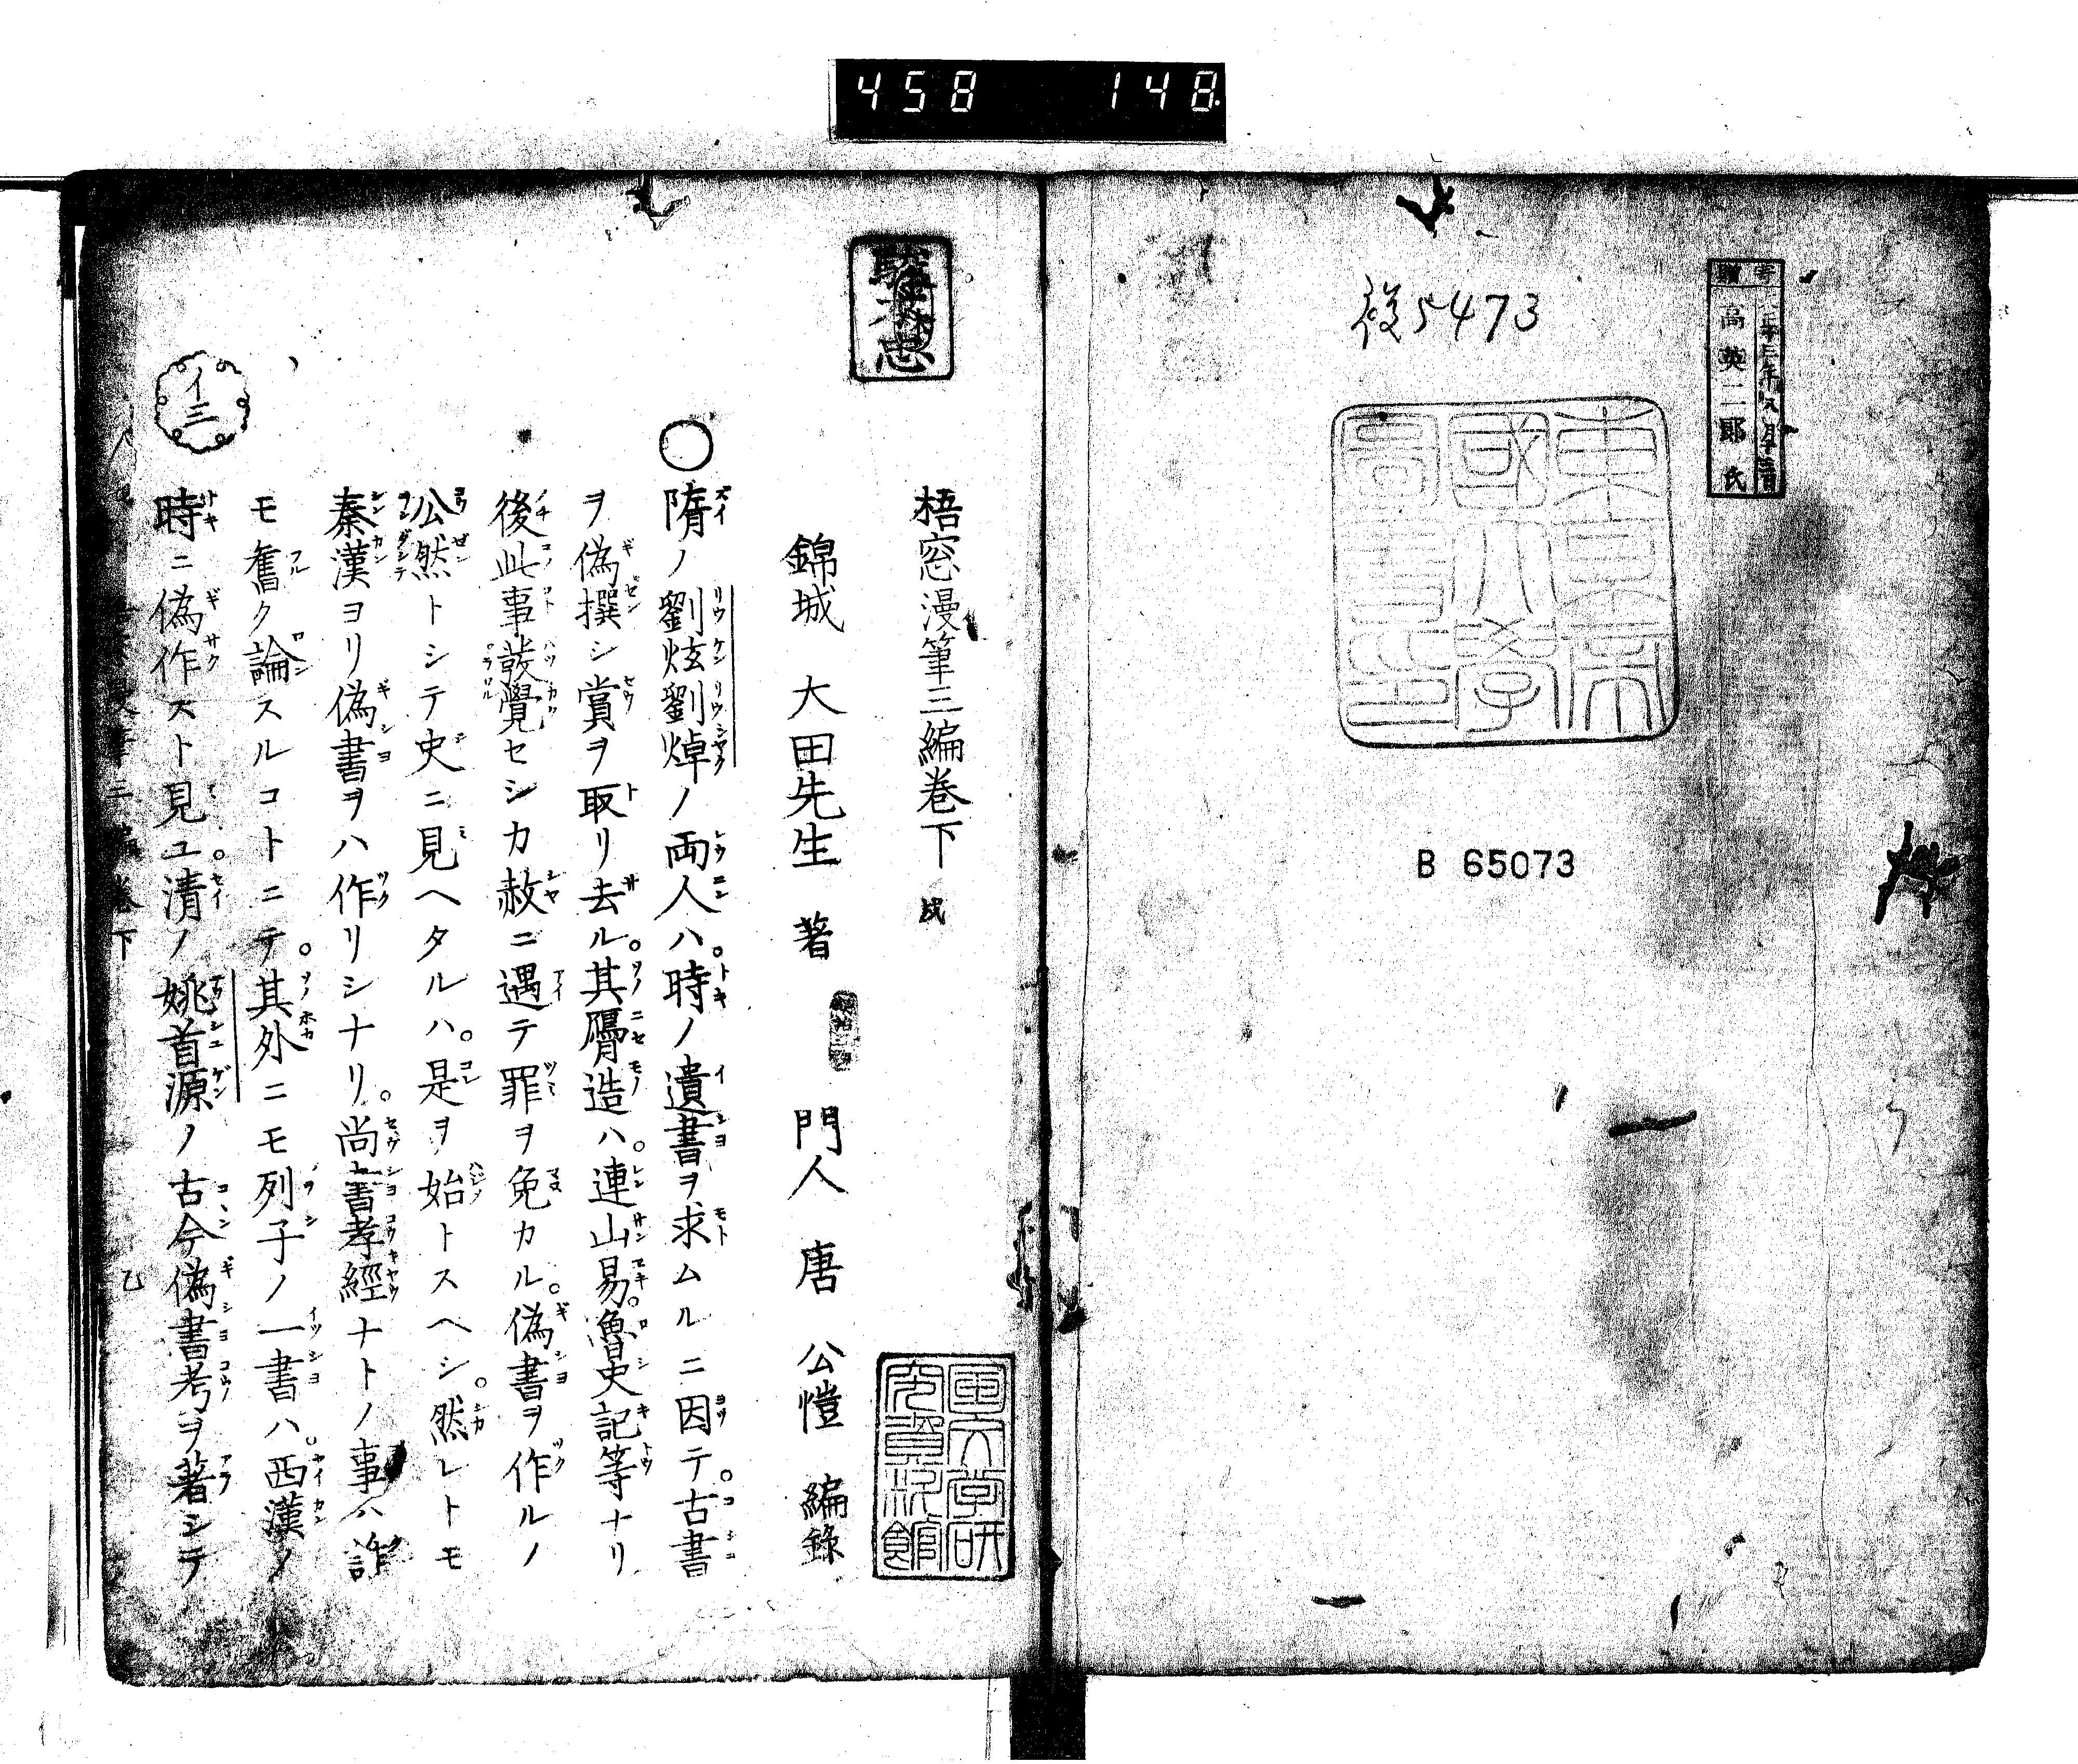 458 148
寄贈
高英二郎氏
5473
東京帝
國大學
圖書印
B 65073
梧窓漫筆三編巻下
錦城 大田先生 著 門人 唐 公愷 編錄
國文学研
究資料館
○隋ノ劉炫劉焯ノ両人ハ。時ノ遺書ヲ求ムルニ因テ。古書
ヲ偽撰シ賞ヲ取リ去ル。其贋造ハ。連山易。魯史記等ナリ
後此事發覺セシカ赦ニ遇テ罪ヲ免カル。偽書ヲ作ルノ
公然トシテ史ニ見ヘタルハ。是ヲ始トスヘシ。然レトモ
秦漢ヨリ偽書ヲハ作リシナリ。尚書孝經ナトノ事ハ諍
モ舊ク論スルコトニテ。其外ニモ列子ノ一書ハ。西漢ノ
時ニ偽作スト見ユ。清ノ姚首源ノ古今偽書考ヲ著シテ
イ三
三編巻下